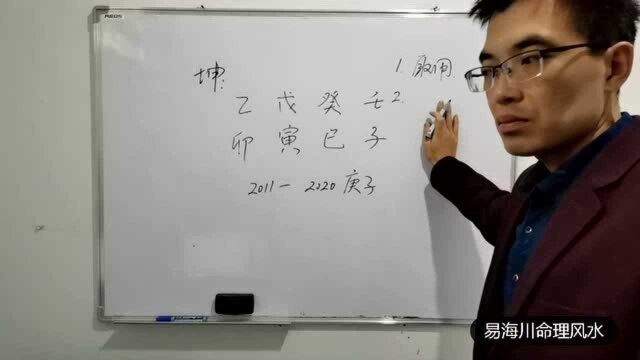 AEOS
坤:
1.取用
乙 戊 癸 壬 2.
卯 寅 巳 子
2011—2020 庚子
易海川命理风水